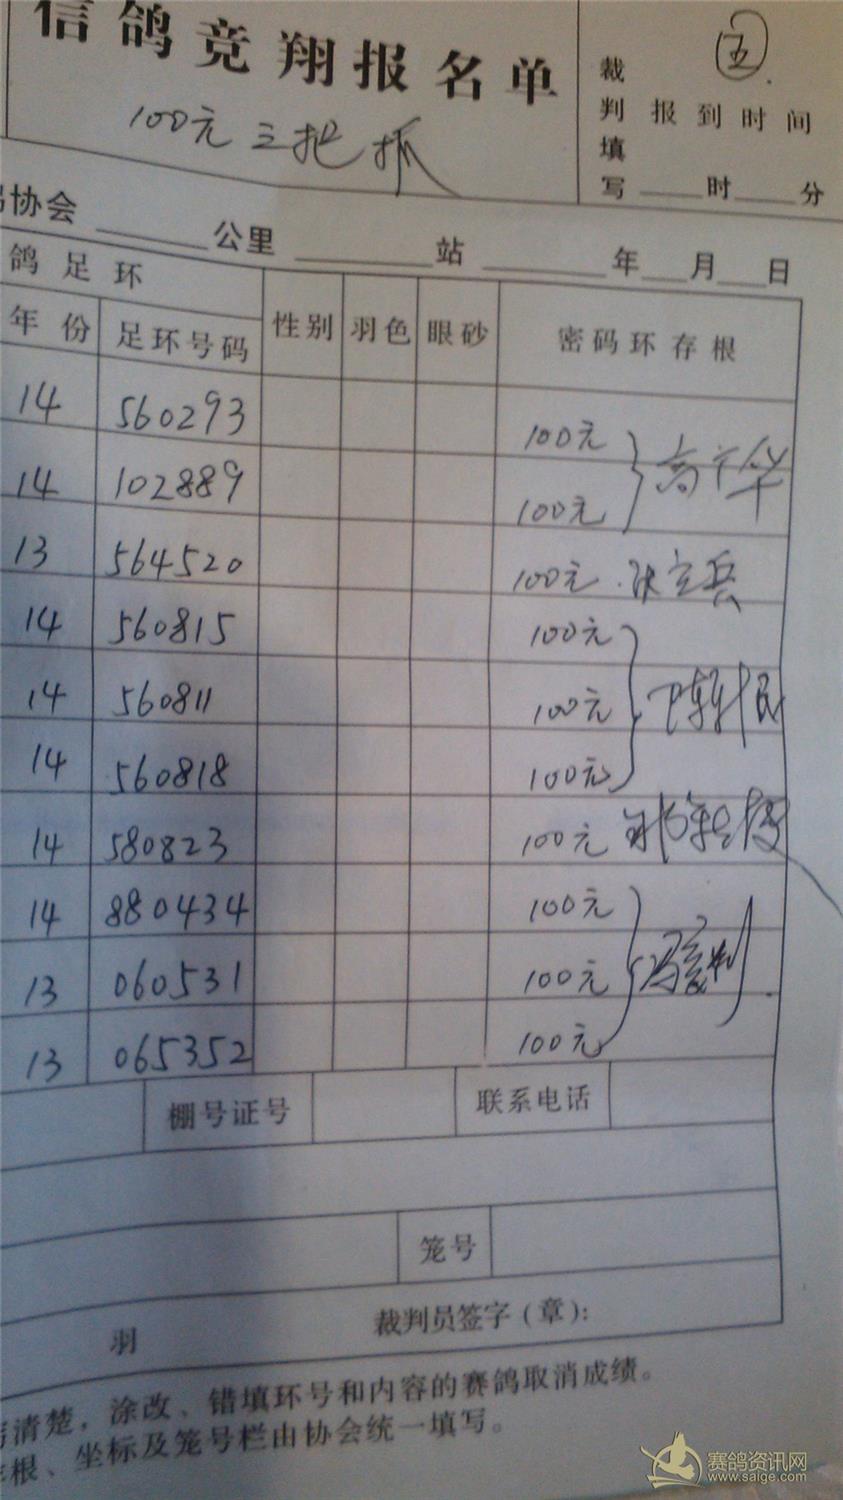 信鸽竞翔报名单
100元三把抓
五
裁判填写 报到时间
____时____分
协会 ______公里 ______站 ______年___月___日
鸽足环
年份 足环号码 性别 羽色 眼砂 密码环存根
14 560293 100元
14 102889 100元
13 564520 100元
14 560815 100元
14 560811 100元
14 560818 100元
14 580823 100元
14 880434 100元
13 060531 100元
13 065352 100元
棚号证号 联系电话
笼号
羽 裁判员签字(章):
清楚，涂改、错填环号和内容的赛鸽取消成绩。
根、坐标及笼号栏由协会统一填写。
赛鸽资讯网
www.saige.com